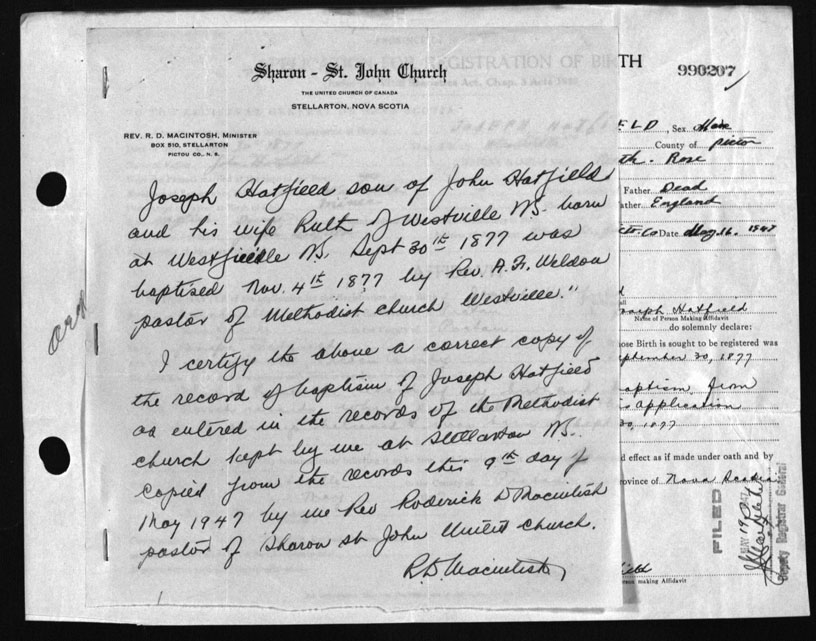 Sharon - St. John Church
THE UNITED CHURCH OF CANADA
STELLARTON, NOVA SCOTIA
REV. R. D. MACINTOSH, MINISTER
BOX 510, STELLARTON
PICTOU CO., N. S.
Joseph Hatfield son of John Hatfield
and his wife Ruth of Westville NS. born
at Westville NS. Sept 30th 1877 was
baptised Nov. 4th 1877 by Rev. A. F. Weldon
pastor of Methodist Church Westville."
I certify the above a correct copy of
the record of baptism of Joseph Hatfield
as entered in the records of the Methodist
church kept by me at Stellarton NS.
Copied from the records this 9th day of
May 1947 by me Rev Roderick D Macintosh
pastor of Sharon St John United Church.
R.D. Macintosh
TH
990207
ELD, Sex Male
County of Pictou
th. Rose
Father Dead
ather England
Co Date May 16. 1947
oseph Hatfield
Name of Person Making Affidavit
do solemnly declare:
ose Birth is sought to be registered was
eptember 30, 1877
aptism from
s application
30, 1877
d effect as if made under oath and by
rovince of Nova Scotia
FILED
MAY 19 1947
Deputy Registrar General
field
rson making Affidavit